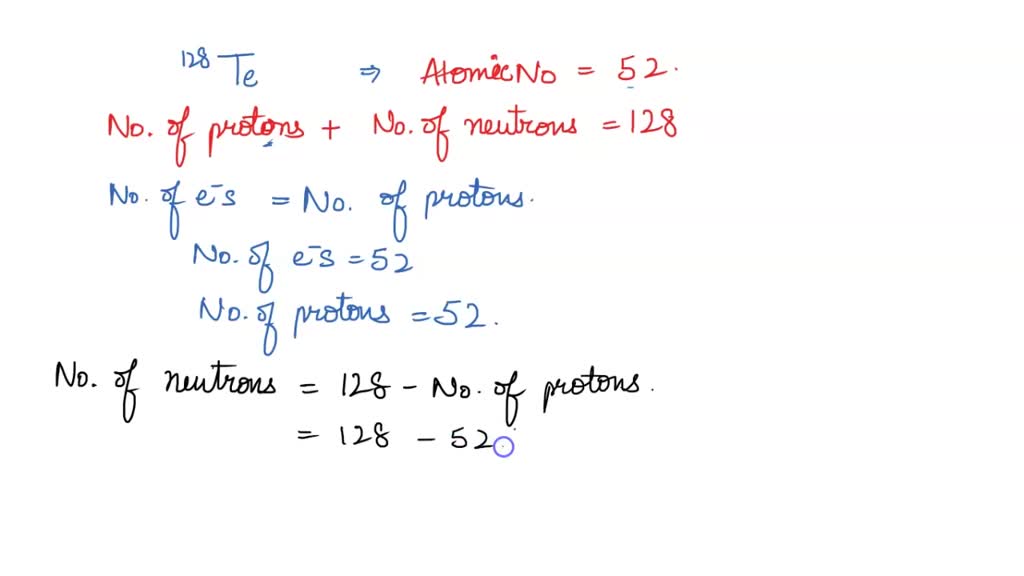 ¹²⁸Te ⇒ Atomic No = 52.
No. of protons + No. of neutrons = 128
No. of e⁻s = No. of protons.
No. of e⁻s = 52
No. of protons = 52.
No. of neutrons = 128 - No. of protons.
= 128 - 52